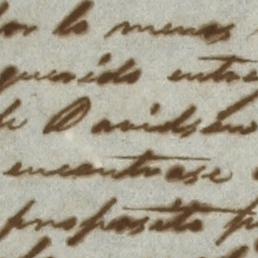 por lo menos
querido entre
de Davidson
encontrase
proposito p